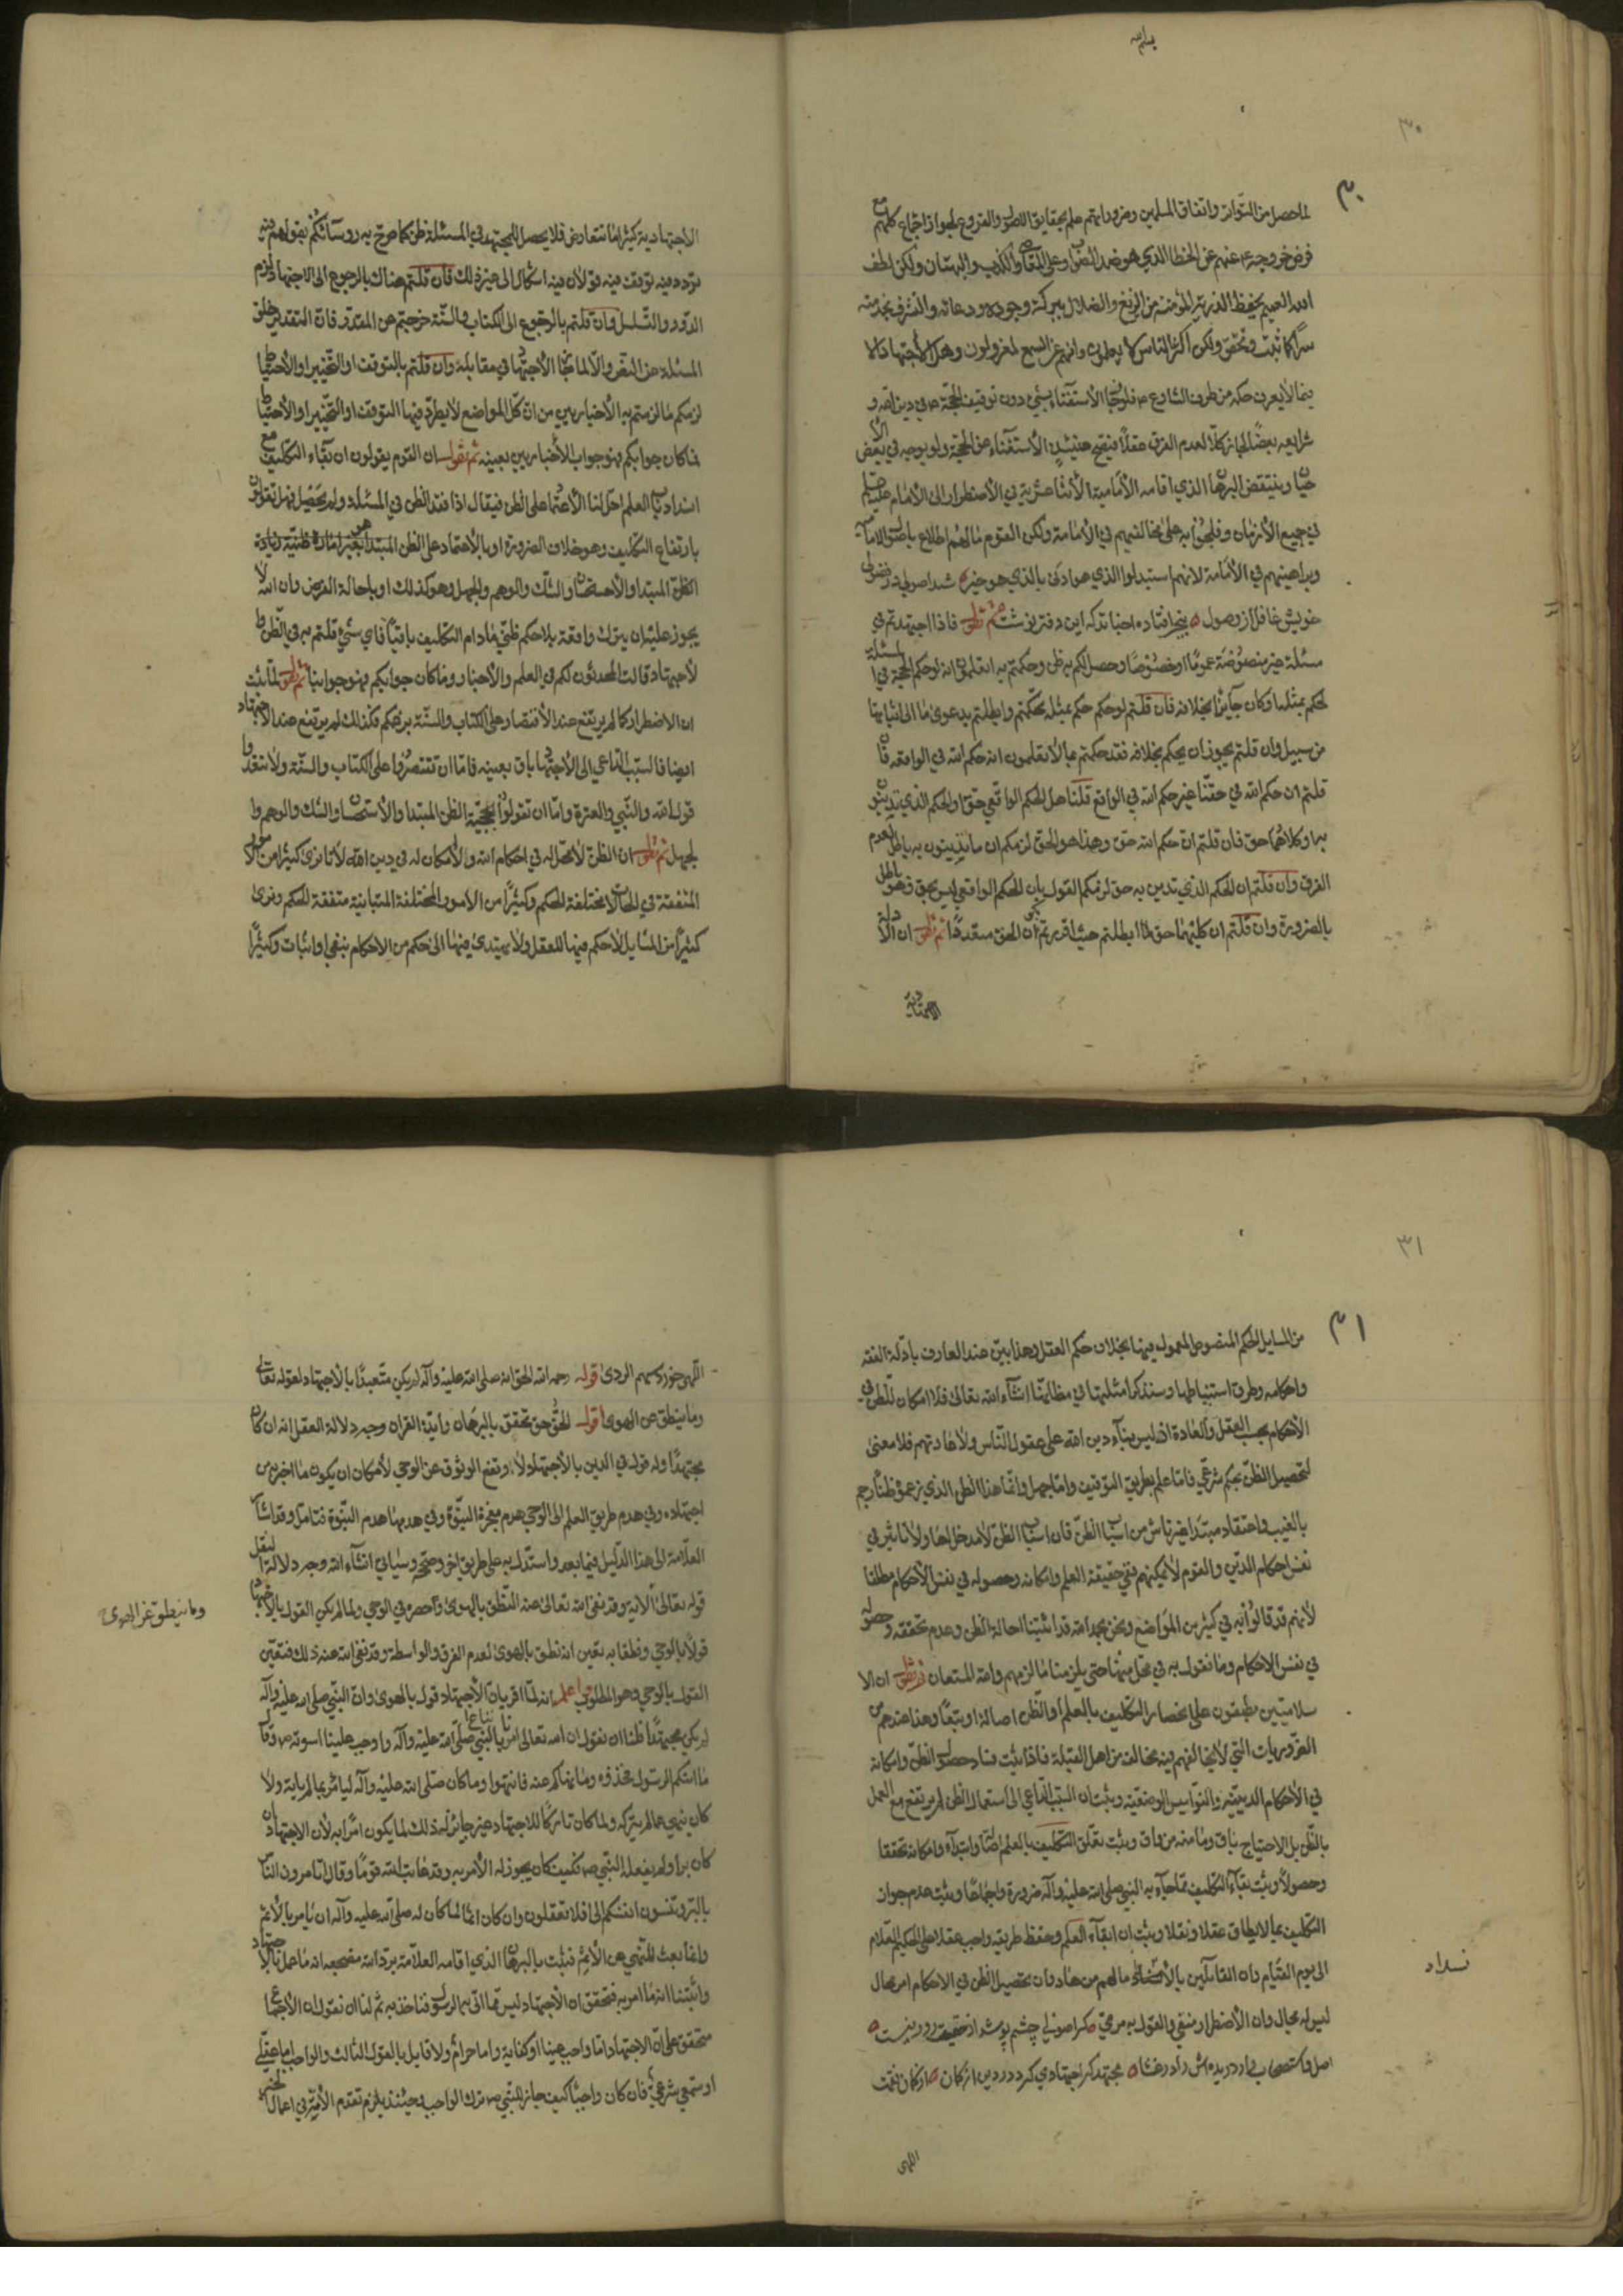 ٣٠
٣٠
لما حصل من التواتر واتفاق المسلمين وضروراتهم علم بحقايق الاصول والفروع لجواز اجتماع كلهم مع
فرض خروجه ع عنهم عن الخطا الذي هو ضد الصواب وعلى والكذب والبهتان ولكن لطف
الله العميم يحفظ المؤمنة من الزيغ والضلال ببركة وجوده ودعائه
سرا كما ثبت وتحقق ولكن اكثر الناس لا يعلمون وانهم عن السمع لمعزولون وهل الاجتهاد الا
فيما لا يعرف حكمه من طرف الشارع ع فلو جاز الاستغناء بشيء دون توقيف الحجة ع في دين الله و
شرايعه بعضا لجاز كلا لعدم الفرق عقلا فيقبح حينئذ الاستغناء عن الحجة ولو بوجه في بعض الا
حيان وينتقض البرهان الذي اقامه الامامية الاثنا عشرية في الاضطرار الى الامام عليه السلم
في جميع الازمان وفلجوا به على مخالفيهم في الامامة ولكن القوم ما لهم اطلاع باصول الامامية
وبراهينهم في الامامة لانهم استبدلوا الذي هو ادنى بالذي هو خير شد اصولي در فضولی
خويش غافل از وصول بنجر افتاده احبا ترکه این دفتر نوشت ثم نقول فاذا اجتهدتم في
مسئلة غير منصوصة عموما او خصوصا وحصل لكم به ظن وحكمتم به اتعلمون انه لو حكم الحجة في المسئلة
لحكم بمثلها وكان جايزا بخلافه فان قلتم لو حكم حكم بمثله تحكمتم وابطلتم بدعوى ما الى اثباتها
من سبيل وان قلتم يجوز ان يحكم بخلافه فقد حكمتم بما لا تعلمون انه حكم الله في الواقعة فان
قلتم ان حكم الله في حقنا غير حكم الله في الواقع قلنا هل الحكم الواقعي حق او الحكم الذي تدينون
به او كلاهما حق فان قلتم ان حكم الله حق وهذا هو الحق لزمكم ان ما تدينون به باطل لعدم
الفرق وان قلتم ان الحكم الذي تدين به حق لزمكم القول بان الحكم الواقعي ليس بحق فهو باطل
بالضرورة وان قلتم ان كليهما حق لما ابطلتم حيث اقررتم بان الحق متعددا ثم نقول ان الادلة
الاجتهادية
الاجتهادية كثيرا ما تتعارض فلا يحصل للمجتهد في المسئلة ظن كما صرح به رؤسائكم بقولهم فيه
تردد فيه توقف فيه قولان فيه اشكال الى غير ذلك فان قلتم هناك بالرجوع الى الاجتهاد لزم
الدور والتسلسل وان قلتم بالرجوع الى الكتاب والسنة خرجتم عن المقدر فان التقدير خلو
المسئلة عن النص والا لما جاز الاجتهاد في مقابله وان قلتم بالتوقف او التخيير او الاحتياط
لزمكم ما لزمتم به الاخباريين من ان كل المواضع لا يطرد فيها التوقف او التخيير او الاحتياط
فما كان جوابكم فهو جواب الاخباريين بعينه ثم نقول ان القوم يقولون ان بقاء التكليف مع
انسداد باب العلم احل لنا الاعتماد على الظن فيقال اذا فقد الظن في المسئلة ولم يحصل فهل تقولون
بارتفاع التكليف وهو خلاف الضرورة او بالاعتماد على الظن المبتدا بغير امارة ظنية زيادة
الظن المبتدا والاحسان والشك والوهم والجهل وهو كذلك او باحالة الفرض وان الله لا
يجوز عليه ان يترك واقعة بلا حكم ظني مادام التكليف باقيا فاي شيء قلتم به في الظن و
لاجتهاد قالت المحدثون لكم في العلم والاخبار وما كان جوابكم فهو جوابنا ثم نقول لما ثبت
ان الاضطرار كما لم يرتفع عند الاقتصار على الكتاب والسنة بزعمكم فكذلك لم يرتفع عند الاجتهاد
ايضا فالسبب الداعي الى الاجتهاد باق بعينه فاما ان تقتصروا على الكتاب والسنة ولا تتعدوا
قول الله والنبي والعترة واما ان تقولوا بحجية الظن المبتدا والاستحسان والشك والوهم وا
لجهل ثم نقول ان الظن لا محل له في احكام الله ولا امكان له في دين الله لانا نرى كثيرا من الامور
المتفقة في الحالات مختلفة الحكم وكثيرا من الامور المختلفة المتباينة متفقة الحكم ونرى
كثيرا من المسايل لا حكم فيها للعقل ولا يهتدي فيها الى حكم من الاحكام بنفي او اثبات وكثيرا
٣١
٣١
من المسايل الحكم المنصوص المعمول فيها بخلاف حكم العقل وهذا بين عند العارف بادلة الفقه
واحكامه وطرق استنباطها وسنذكر امثلتها في مظانها انشآء الله تعالى فلا امكان للظن في
الاحكام بحسب العقل والعادة اذ ليس بناء دين الله على عقول الناس ولا عادتهم فلا معنى
لتحصيل الظن بحكم شرعي فاما علم بطريق التوقيف واما جهل وانما هذا الظن الذي زعموه ظنا رجم
بالغيب واعتقاد مبتدا غير ناش من اسباب الظن فان اسباب الظن لا مدخل لها ولا تاثير في
نفس احكام الدين والقوم لا يمكنهم نفي حقيقة العلم وامكانه وحصوله في نفس الاحكام مطلقا
لانهم قد قالوا به في كثير من المواضع ونحن بحمد الله قد اثبتنا احالة الظن وعدم تحققه وحصوله
في نفس الاحكام وما نقول به في محل منها حتى يلزمنا ما لزمهم والله المستعان ثم نقول ان الا
سلاميين مطبقون على انحصار التكليف بالعلم او الظن اصالة او تبعا وهذا عندهم من
الضروريات التي لا يخالفهم فيه مخالف من اهل القبلة فاذا ثبت فساد حصول الظن وامكانه
في الاحكام الدينية والنواميس الوضعية وثبت ان السبب الداعي الى استعمال الظن لم يرتفع مع العمل
بالظن بل الاحتياج باق وما منه من واق وثبت تعلق التكليف بالعلم وابتداء وامكانه تحققا
وحصولا وثبت بقاء التكليف بما جاء به النبي صلى الله عليه وآله ضرورة واجماعا وثبت عدم جواز
التكليف بما لا يطاق عقلا ونقلا وثبت ان ابقآء العلم وحفظ طريقه واجب عقلا على الحكيم العلام
الى يوم القيام وان القايلين بالانسداد ما لهم من هاد وان تحصيل الظن في الاحكام امر محال
ليس له مجال وان الاضطرار منفي والقول به مرمي كر اصولي چشم پوشد از حقیقت دور نیست
اصل
مجتهد کر اجتهادي کرد در دین
انسداد
اللهم
اللهم خور سهم الردى قوله رحمه الله الحق انه صلى الله عليه وآله لم يكن متعبدا بالاجتهاد لقوله تعالى
وما ينطق عن الهوى اقول الحق حق تحقق بالبرهان وآية القران وجه دلالة العقل انه ان كان
مجتهدا وله قول في الدين بالاجتهاد لارتفع الوثوق عن الوحي لامكان ان يكون ما اخبر به من
اجتهاده وفي هدم طريق العلم الى الوحي هدم معجزة النبوة وفي هدمها هدم النبوة فتامل وقد اشار
العلامة الى هذا الدليل فيما بعد واستدل به على طريق اخر وصححه وسياتي انشآء الله وجه دلالة النقل
قوله تعالى الاية وقد نفى الله تعالى عنه النطق بالهوى واحصره في الوحي ولما لم يكن القول بالاجتهاد
وما ينطق عن الهوى
قولا بالوحي ونطقا به تعين انه نطق بالهوى لعدم الفرق والواسطة وقد نفى الله عنه ذلك فتعين
القول بالوحي وهو المطلوب واعلم انه لما اقر بان الاجتهاد قول بالهوى وان النبي صلى الله عليه وآله
لم يكن مجتهدا فلنا ان نقول ان الله تعالى امرنا باتباع النبي صلى الله عليه وآله واوجب علينا اسوته ص وقال
ما اتيكم الرسول فخذوه وما نهاكم عنه فانتهوا وما كان صلى الله عليه وآله ليامر بما لم ياته ولا
كان ينهى عما لم يتركه ولما كان تاركا للاجتهاد غير جائز له ذلك لما يكون امرا به لان الاجتهاد ان
كان برا ولم يفعله النبي ص فكيف كان يجوز له الامر به وقد عاتب الله قوما وقال اتامرون الناس
بالبر وتنسون انفسكم الى افلا تعقلون وان كان اثما لما كان له صلى الله عليه وآله ان يامر بالاثم
وانما بعث للنهي عن الاثم فثبت بالبرهان الذي اقامه العلامة برد الله مضجعه انه ما عمل بالاجتهاد
واثبتنا انه ما امر به فتحقق ان الاجتهاد ليس مما اتى به الرسول فناخذ به ثم لنا ان نقول ان الاجماع
متحقق على ان الاجتهاد اما واجب عينا او كفاية واما حرام ولا قايل بالقول الثالث والواجب اما عقلي
او سمعي شرعي فان كان واجبا كيف جاز للنبي ص ترك الواجب وحينئذ يلزم تقدم الامة في اعمال